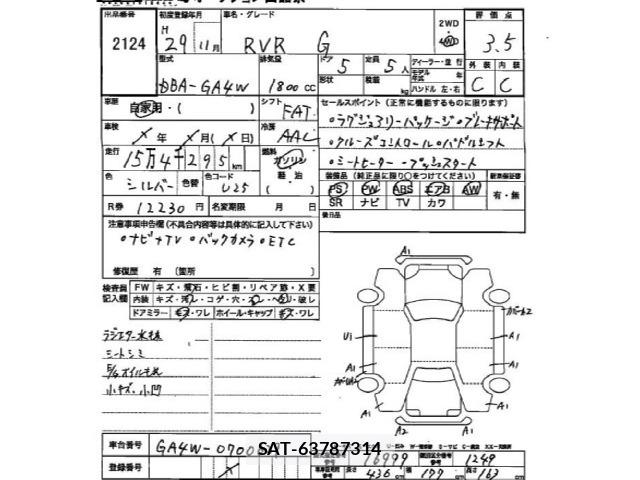 出品番号 初度登録年月 車名・グレード 2WD 評価点
2124 H 29年 11月 RVR G 4WD 3.5
型式 排気量 ドア 5 定員 5人 ディーラー・並行
DBA-GA4W 1800cc 形状 積載 kg モデル年式 年
ハンドル 左・右
外装 内装
C C
車歴 自家用・( ) シフト FAT
セールスポイント(正常に機能するものに限ります)
・ラグジュアリーパッケージ・ブレーキサポート
車検 X年 X月(X日) 冷房 AAC
・クルーズコントロール・パドルシフト
走行 15万4千295km 燃料 ガソリン
・シートヒーター・プッシュスタート
軽・油
( )
色 シルバー 色替 色コード U25
装備品(純正品に限り○をつけてください) 新車保証書
PS PW ABS エアB AW 有・無
SR ナビ TV カワ
R券 12230円 名変期限 月 日
後日品
注意事項申告欄(不具合内容等は具体的に記入して下さい)
・ナビ+TV・バックカメラ・ETC
修復歴 有(箇所 )
検査員記入欄 FW キズ・飛石・ヒビ割・リペア跡・X要
内装
ドアミラー キズ・ワレ ホイール・キャップ キズ・ワレ
ラジエター水
シートシミ
小キズ・小凹
A1
U1
A1
A1
A1
A1
A1
A2
A1
車台番号 GA4W-0700
SAT-63787314
登録番号 X
16999 1249
長さ 436cm 幅 177cm 高さ 163